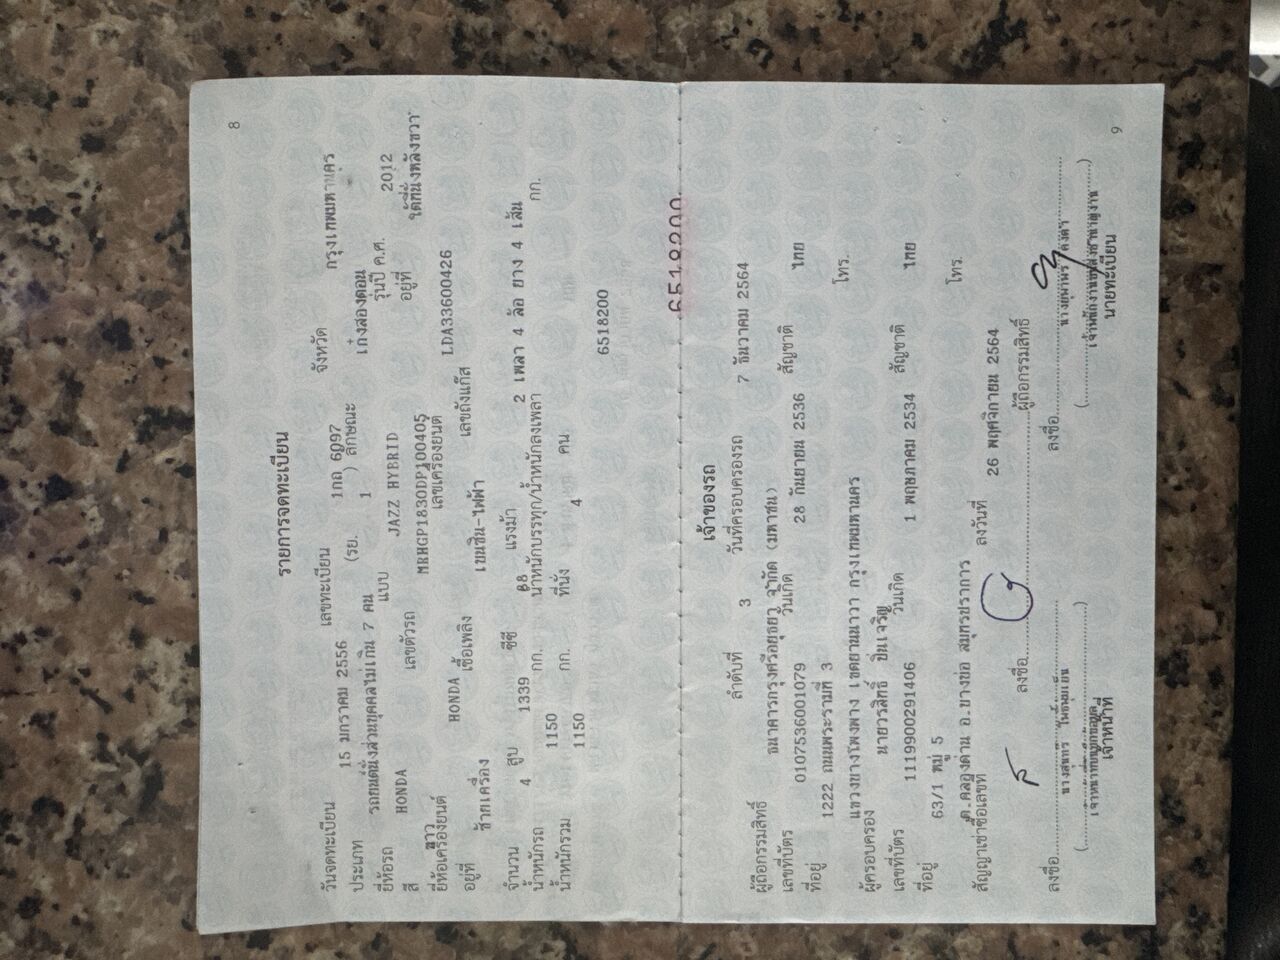 8
รายการจดทะเบียน
วันจดทะเบียน 15 มกราคม 2556 เลขทะเบียน 1กถ 6997 จังหวัด กรุงเทพมหานคร
ประเภท รถยนต์นั่งส่วนบุคคลไม่เกิน 7 คน (รย. 1 ) ลักษณะ เก๋งสองตอน
ยี่ห้อรถ HONDA แบบ JAZZ HYBRID รุ่นปี ค.ศ. 2012
สี ขาว เลขตัวรถ MRHGP1830DP100405 อยู่ที่ ใต้ที่นั่งหลังขวา
ยี่ห้อเครื่องยนต์ HONDA เลขเครื่องยนต์ LDA33600426
อยู่ที่ ซ้ายเครื่อง เชื้อเพลิง เบนซิน-ไฟฟ้า เลขถังแก๊ส
จำนวน 4 สูบ 1339 ซีซี 88 แรงม้า 2 เพลา 4 ล้อ ยาง 4 เส้น
น้ำหนักรถ 1150 กก. น้ำหนักบรรทุก/น้ำหนักลงเพลา กก.
น้ำหนักรวม 1150 กก. ที่นั่ง 4 คน
6518200
6518200
เจ้าของรถ
ลำดับที่ 3 วันที่ครอบครองรถ 7 ธันวาคม 2564
ผู้ถือกรรมสิทธิ์ ธนาคารกรุงศรีอยุธยา จำกัด (มหาชน)
เลขที่บัตร 0107536001079 วันเกิด 28 กันยายน 2536 สัญชาติ ไทย
ที่อยู่ 1222 ถนนพระรามที่ 3
แขวงบางโพงพาง เขตยานนาวา กรุงเทพมหานคร โทร.
ผู้ครอบครอง นายวรสิทธิ์
เลขที่บัตร 1119900291406 วันเกิด 1 พฤษภาคม 2534 สัญชาติ ไทย
ที่อยู่ 63/1 หมู่ 5
ต.คลองด่าน อ.บางบ่อ สมุทรปราการ โทร.
สัญญาเช่าซื้อเลขที่ ลงวันที่ 26 พฤศจิกายน 2564
ลงชื่อ ผู้ถือกรรมสิทธิ์
ลงชื่อ ลงชื่อ
เจ้าหน้าที่ นายทะเบียน
9